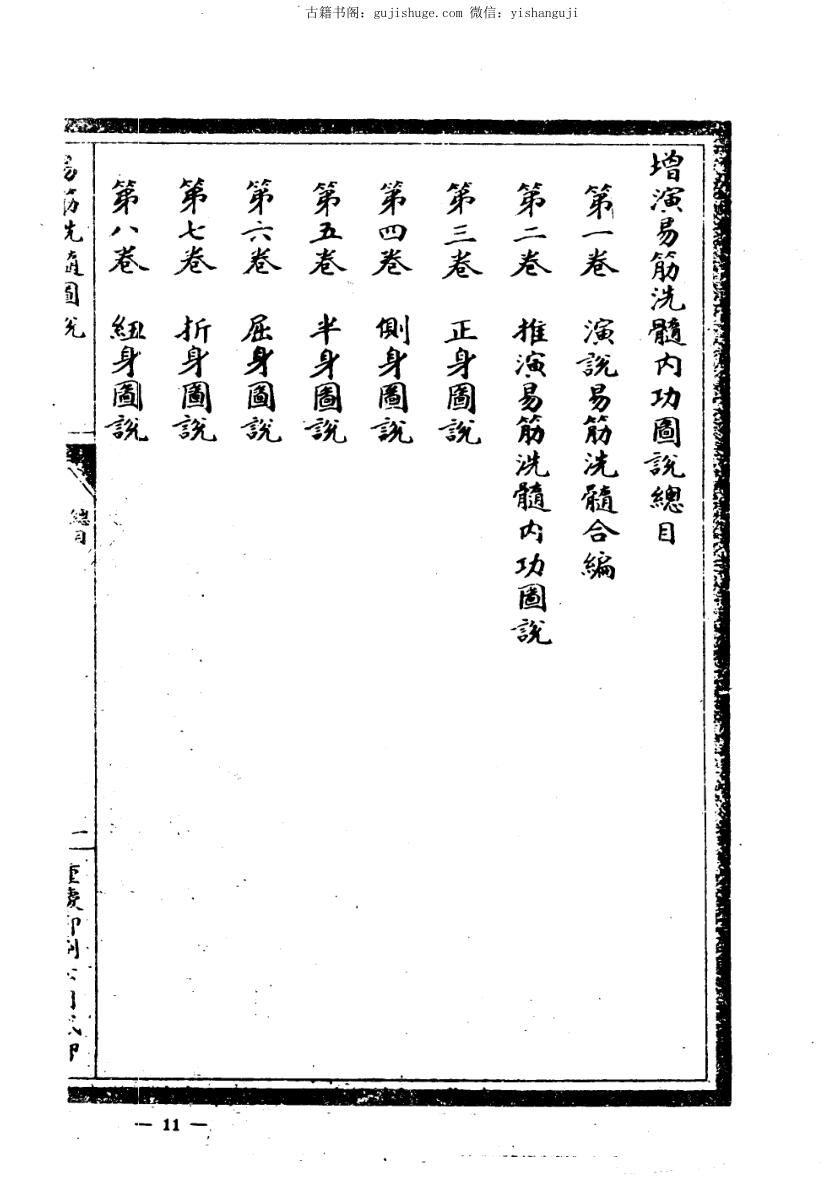 古籍书阁：gujishuge.com 微信：yishanguji
增演易筋洗髓内功圖説總目
第一卷 演説易筋洗髓合編
第二卷 推演易筋洗髓内功圖説
第三卷 正身圖説
第四卷 側身圖説
第五卷 半身圖説
第六卷 屈身圖説
第七卷 折身圖説
第八卷 紐身圖説
易筋洗髓圖說
總目
二
— 11 —